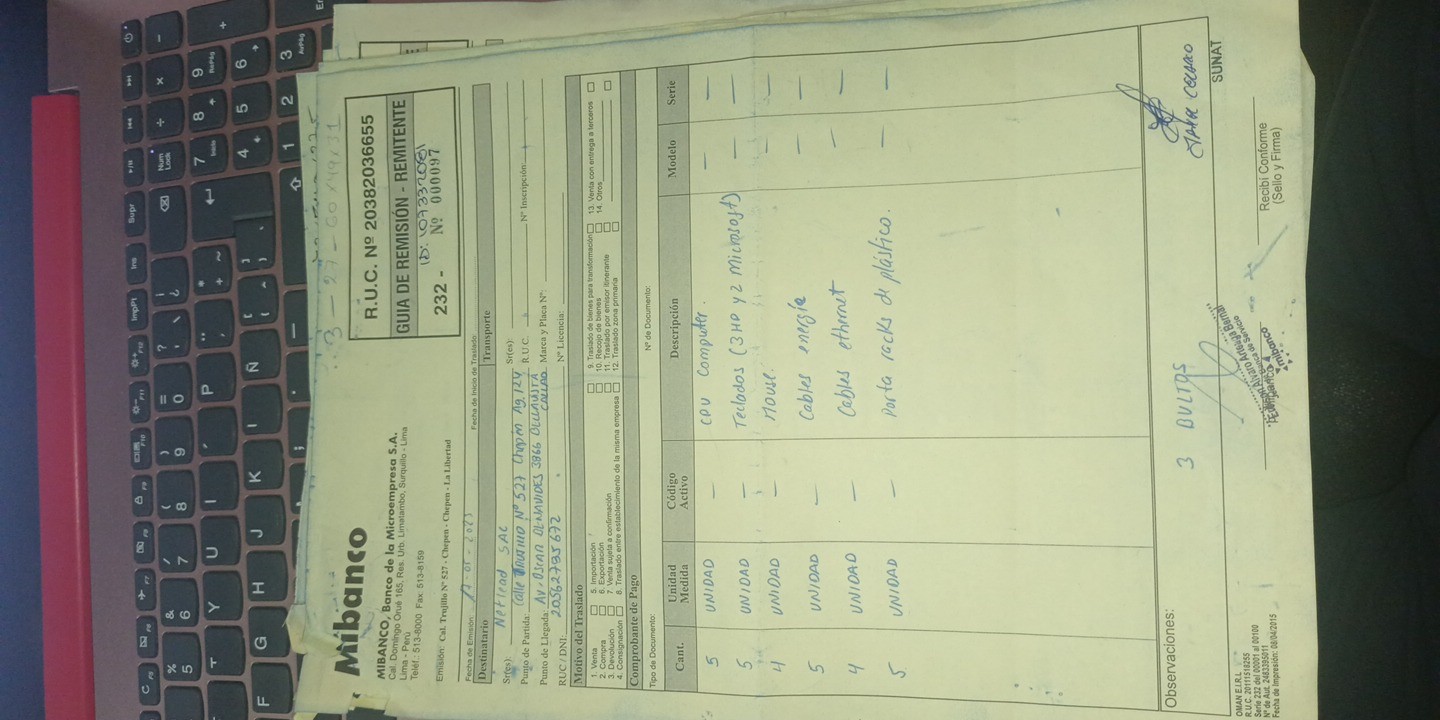 Mibanco
MIBANCO, Banco de la Microempresa S.A.
Cal. Domingo Orué 165, Res. Urb. Limatambo, Surquillo - Lima
Lima - Perú
Teléf.: 513-8000 Fax: 513-8159
Emisión: Cal. Trujillo N° 527 - Chepen - Chepen - La Libertad
R.U.C. Nº 20382036655
GUIA DE REMISIÓN - REMITENTE
232 - Nº 000097
Fecha de Emisión:
Fecha de Inicio de Traslado:
Destinatario
Transporte
Sr(es): Netlead SAC
Sr(es):
Punto de Partida: Calle Trujillo Nº 527 Chepén Ag. 124
R.U.C.
Nº Inscripción:
Punto de Llegada: Av. Oscar Benavides 3866 Bellavista Callao
Marca y Placa Nº:
RUC / DNI: 20562795672
Nº Licencia:
Motivo del Traslado
1. Venta
2. Compra
3. Devolución
4. Consignación
5. Importación
6. Exportación
7. Venta sujeta a confirmación
8. Traslado entre establecimiento de la misma empresa
9. Traslado de bienes para transformación
10. Recojo de bienes
11. Traslado por emisor itinerante
12. Traslado zona primaria
13. Venta con entrega a terceros
14. Otros
Comprobante de Pago
Tipo de Documento:
Nº de Documento:
Cant. Unidad Medida Código Activo Descripción Modelo Serie
5 UNIDAD — CPU Computer. — —
5 UNIDAD — Teclados (3 HP y 2 Microsoft) — —
4 UNIDAD — Mouse. — —
5 UNIDAD — Cables energía — —
4 UNIDAD — Cables ethernet — —
5 UNIDAD — Porta racks de plástico. — —
Observaciones:
3 BULTOS
SUNAT
Recibí Conforme
(Sello y Firma)
OMAN E.I.R.L
R.U.C. 20111518255
Serie 232 del 00001 al 00100
Nº de Aut. 2483395011
Fecha de Impresión: 08/04/2015
&
6
%
5
7
(
8
)
9
=
0
T
Y
U
I
P
F
G
H
J
K
Ñ
Supr
Ins
ImpPt
Num
Lock
7
8
9
4
5
6
1
2
3